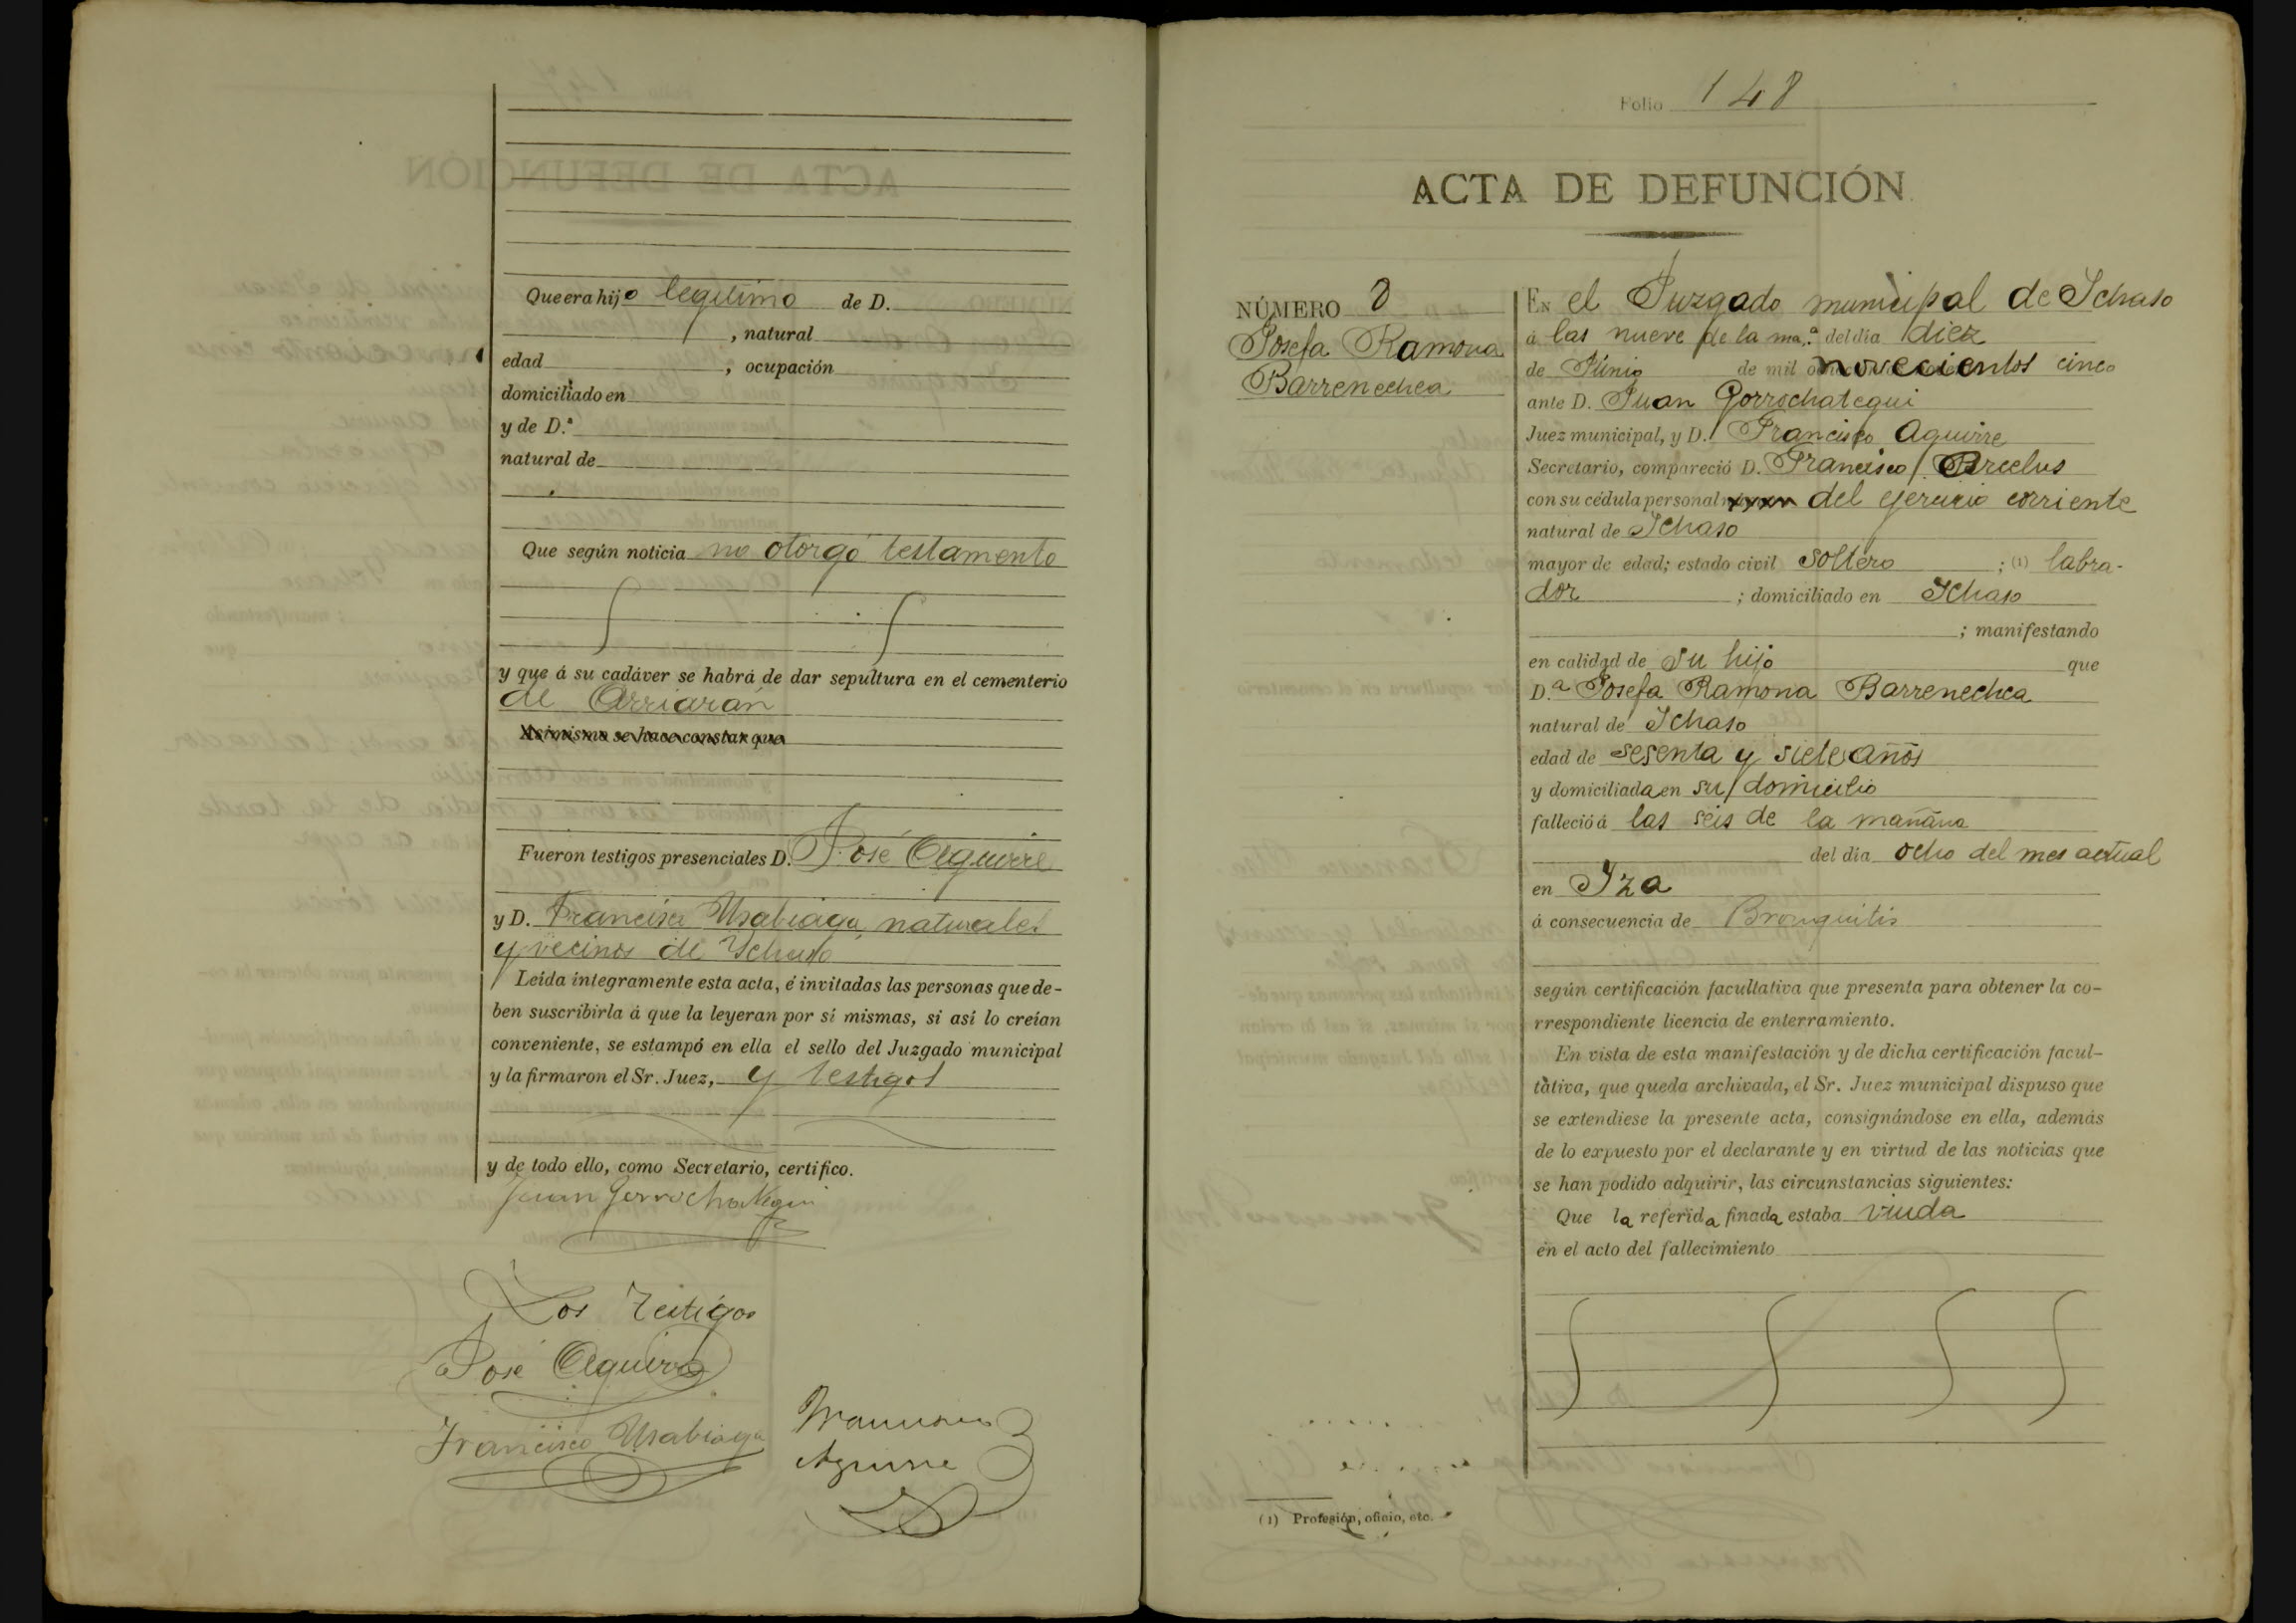 Que era hijo legitimo de D.
, natural
edad , ocupación
domiciliado en
y de D.ª
natural de
Que según noticia no otorgó testamento
y que á su cadáver se habrá de dar sepultura en el cementerio
de Arriarán
Asimismo se hace constar que
Fueron testigos presenciales D. José Aguirre
y D. Francisco Usabiaga naturales
y vecinos de Ichaso
Leída íntegramente esta acta, é invitadas las personas que de-
ben suscribirla á que la leyeran por sí mismas, si así lo creían
conveniente, se estampó en ella el sello del Juzgado municipal
y la firmaron el Sr. Juez, y testigos
y de todo ello, como Secretario, certifico.
Juan Gorrochategui
Los Testigos
José Aguirre
Francisco Usabiaga
Francisco
Aguirre
Folio 148
ACTA DE DEFUNCIÓN
NÚMERO 8
Josefa Ramona
Barrenechea
EN el Juzgado municipal de Ichaso
á las nueve de la ma.ª del día diez
de Junio de mil novecientos cinco
ante D. Juan Gorrochategui
Juez municipal, y D. Francisco Aguirre
Secretario, compareció D. Francisco Arcelus
con su cédula personal del ejercicio corriente
natural de Ichaso
mayor de edad; estado civil soltero ; (1) labra-
dor ; domiciliado en Ichaso
; manifestando
en calidad de su hijo que
D.ª Josefa Ramona Barrenechea
natural de Ichaso
edad de sesenta y siete años
y domiciliada en su domicilio
falleció á las seis de la mañana
del día ocho del mes actual
en Iza
á consecuencia de Bronquitis
según certificación facultativa que presenta para obtener la co-
rrespondiente licencia de enterramiento.
En vista de esta manifestación y de dicha certificación facul-
tativa, que queda archivada, el Sr. Juez municipal dispuso que
se extendiese la presente acta, consignándose en ella, además
de lo expuesto por el declarante y en virtud de las noticias que
se han podido adquirir, las circunstancias siguientes:
Que la referida finada estaba viuda
en el acto del fallecimiento
(1) Profesión, oficio, etc.